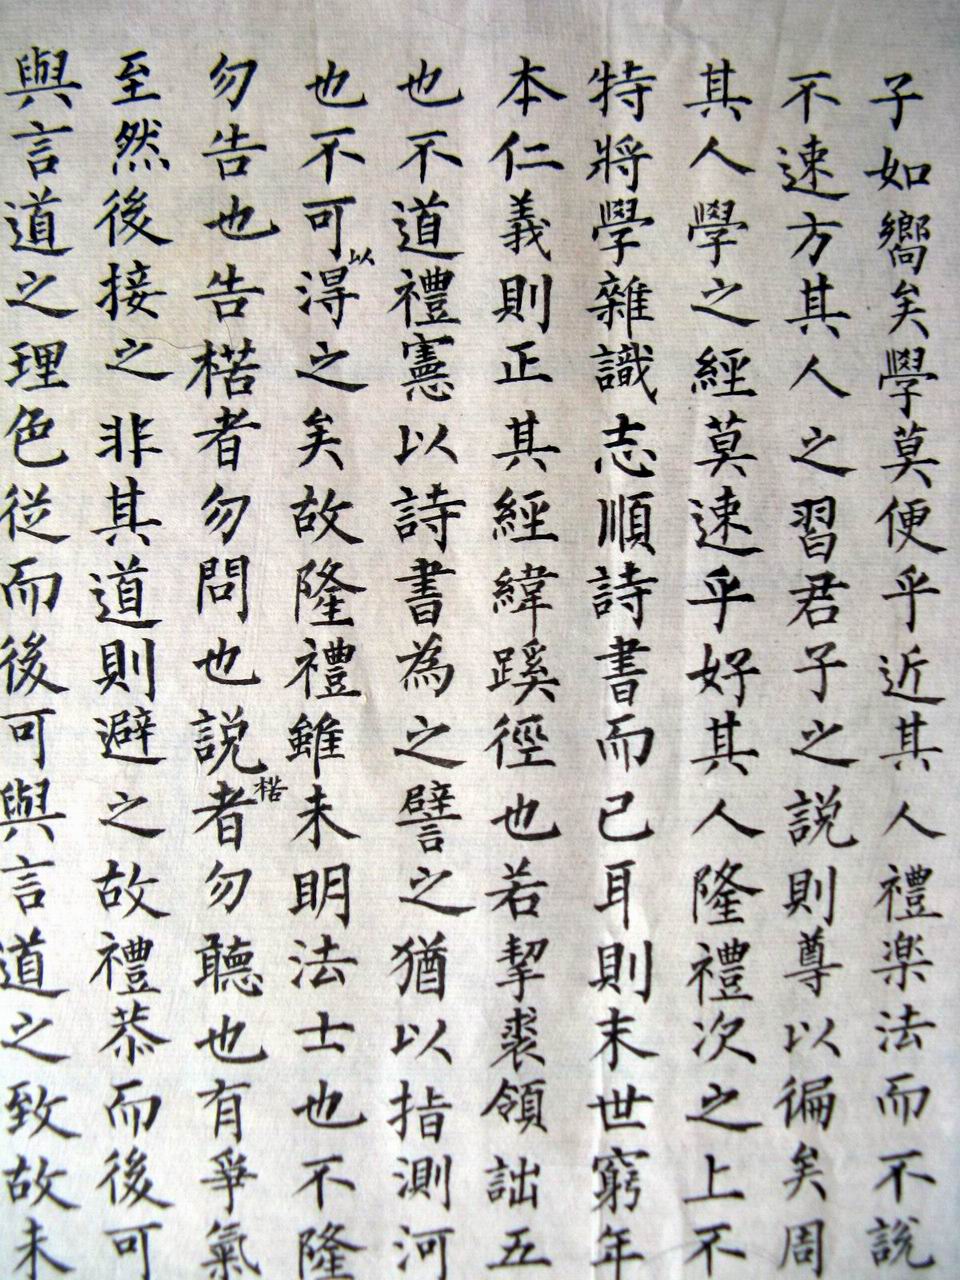 子如嚮矣學莫便乎近其人禮楽法而不說
不速方其人之習君子之説則尊以徧矣周
其人學之經莫速乎好其人隆禮次之上不
特將學雜識志順詩書而已耳則末世窮年
本仁義則正其經緯蹊徑也若挈裘領詘五
也不道禮憲以詩書為之譬之猶以指測河
也不可以得之矣故隆禮雖未明法士也不隆
勿告也告楛者勿問也説楛者勿聽也有爭氣
至然後接之非其道則避之故禮恭而後可
與言道之理色從而後可與言道之致故未